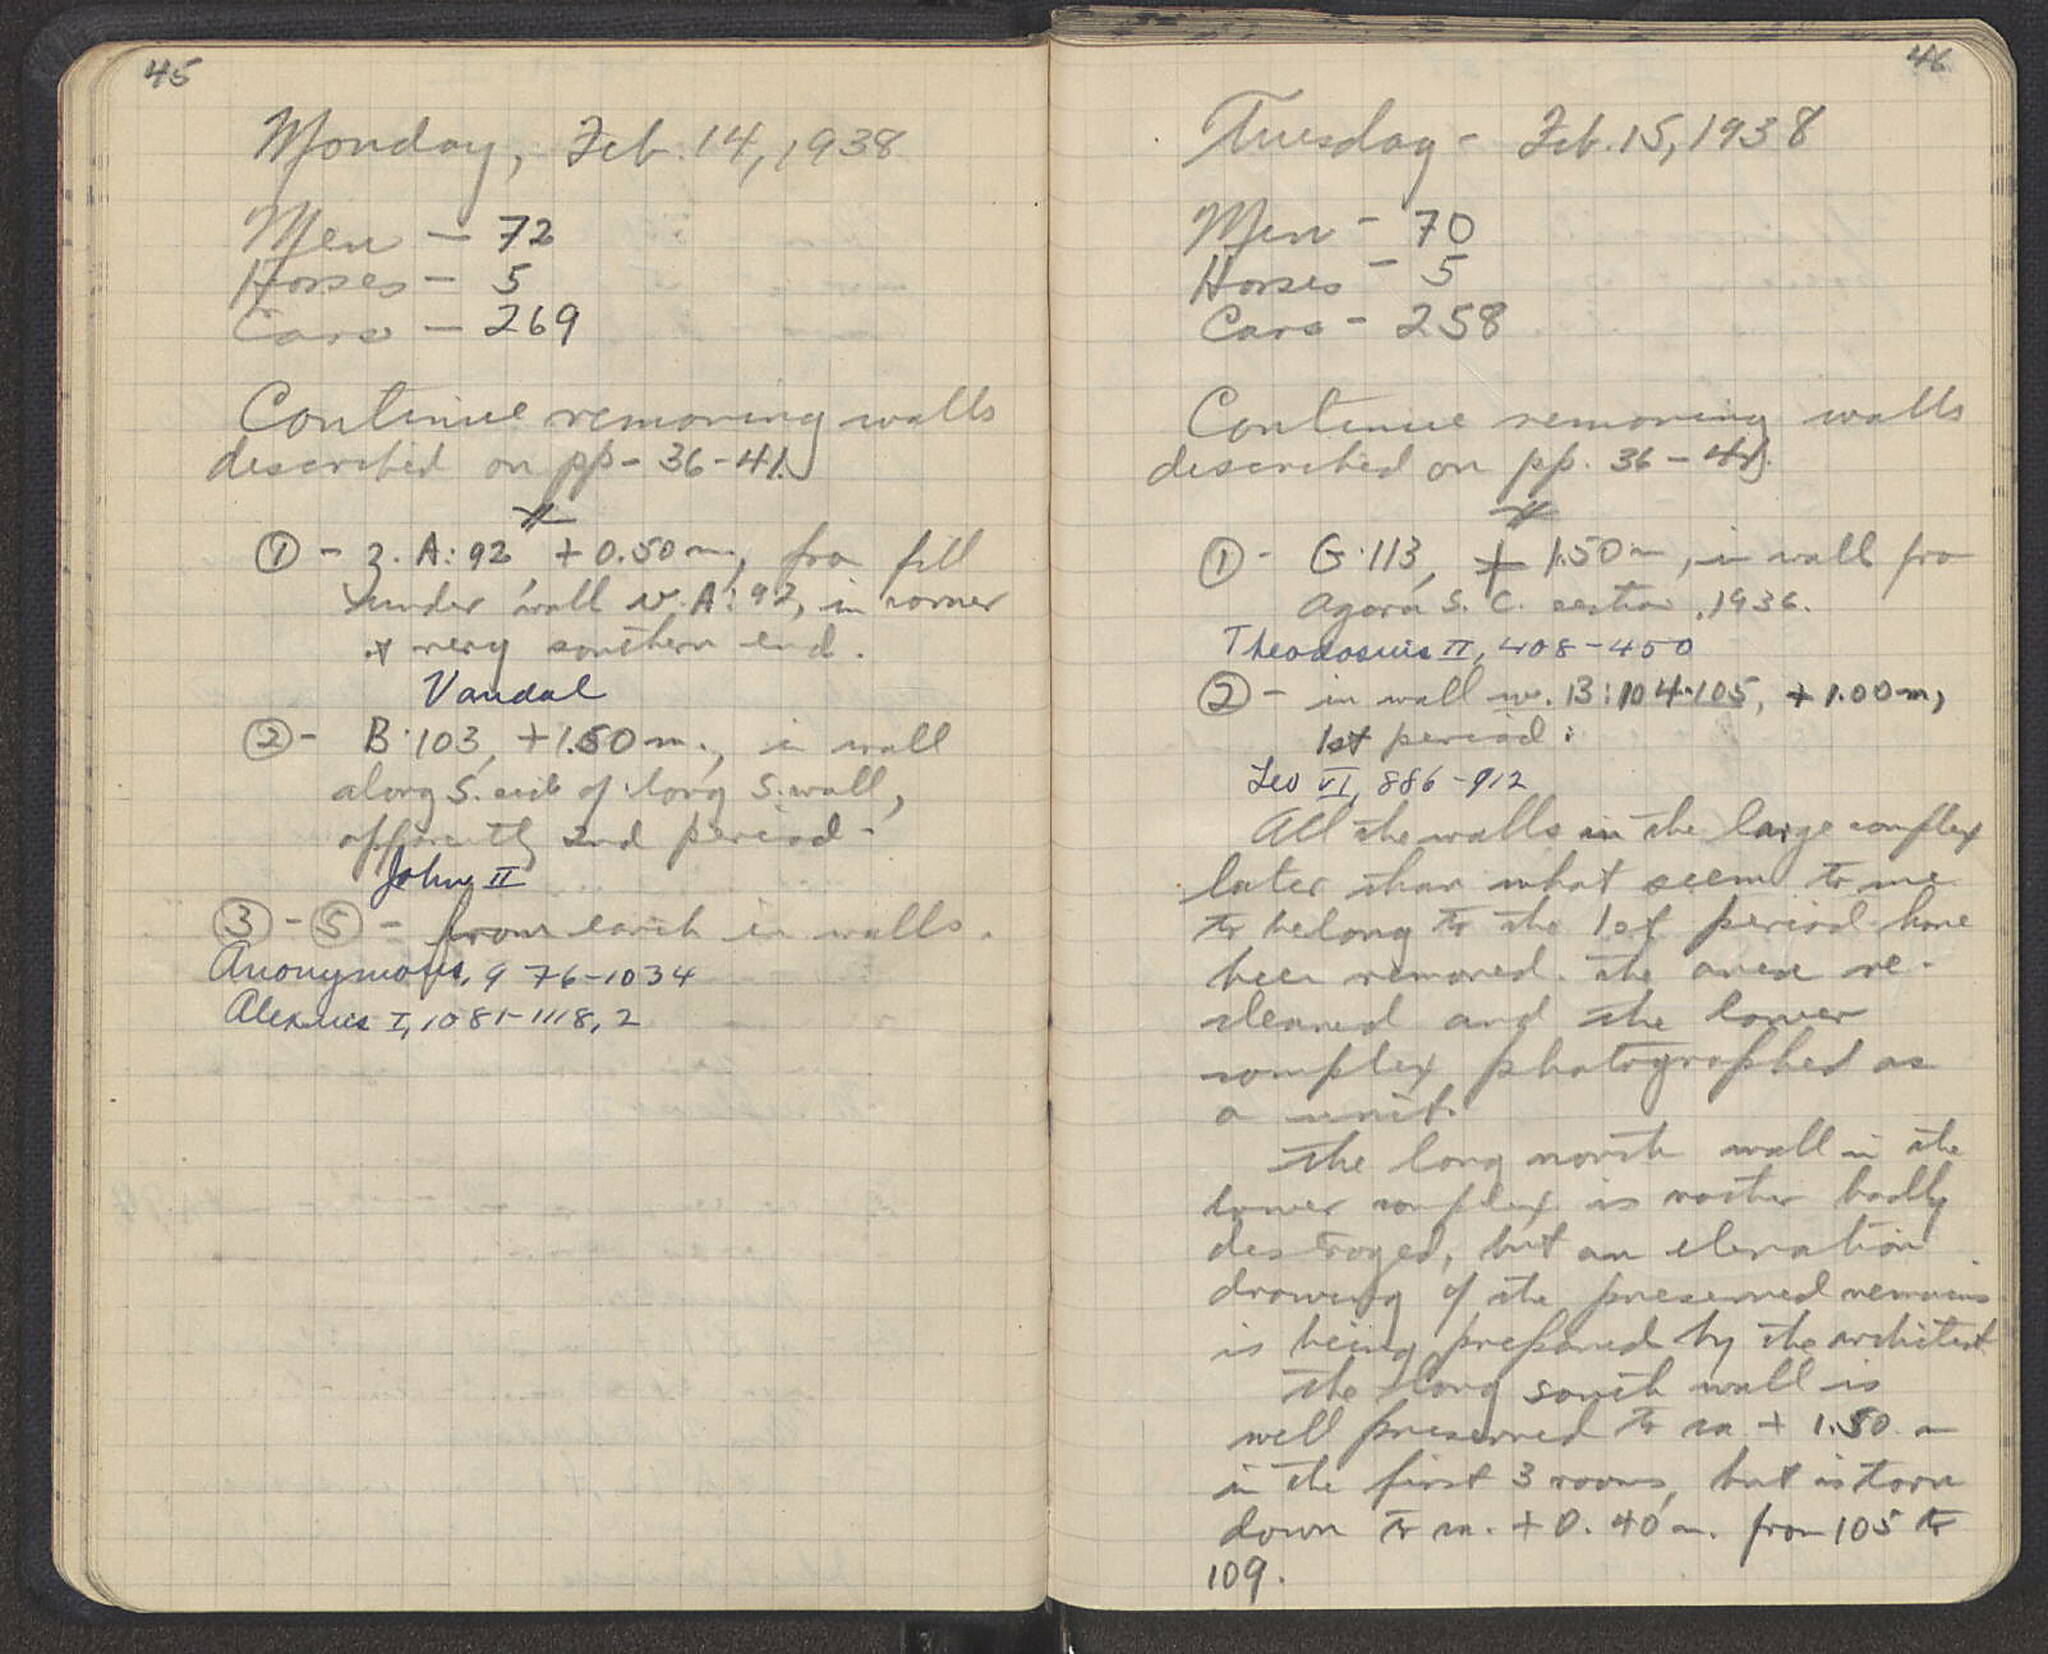 45
Monday, Feb. 14, 1938
Men — 72
Horses — 5
Cars — 269
Continue removing walls
described on pp - 36-41.
① - z. A:92, +0.50 m, from fill
under wall w. A:92, in corner
at very southern end.
Vandal
② - B:103, +1.50 m., in wall
along S. side of long S. wall,
apparently 2nd period -
John II
③ - ⑤ - from earth in walls.
Anonymous, 976-1034
Alexius I, 1081-1118, 2
46
Tuesday - Feb. 15, 1938
Men - 70
Horses - 5
Cars - 258
Continue removing walls
described on pp. 36 - 41.
① - G:113, + 1.50 m, in wall from
Agora S. C. section, 1936.
Theodosius II, 408-450
② - in wall w. B:104-105, +1.00 m,
1st period:
Leo VI, 886-912
All the walls in the large complex
later than what seem to me
to belong to the 1st period have
been removed. The area re-
cleaned and the lower
complex photographed as
a unit.
The long north wall in the
lower complex is rather badly
destroyed, but an elevation
drawing of the preserved remains
is being prepared by the architect
The long south wall is
well preserved to ca + 1.50 m
in the first 3 rooms, but is torn
down to ca. + 0.40 m. from 105 to
109.